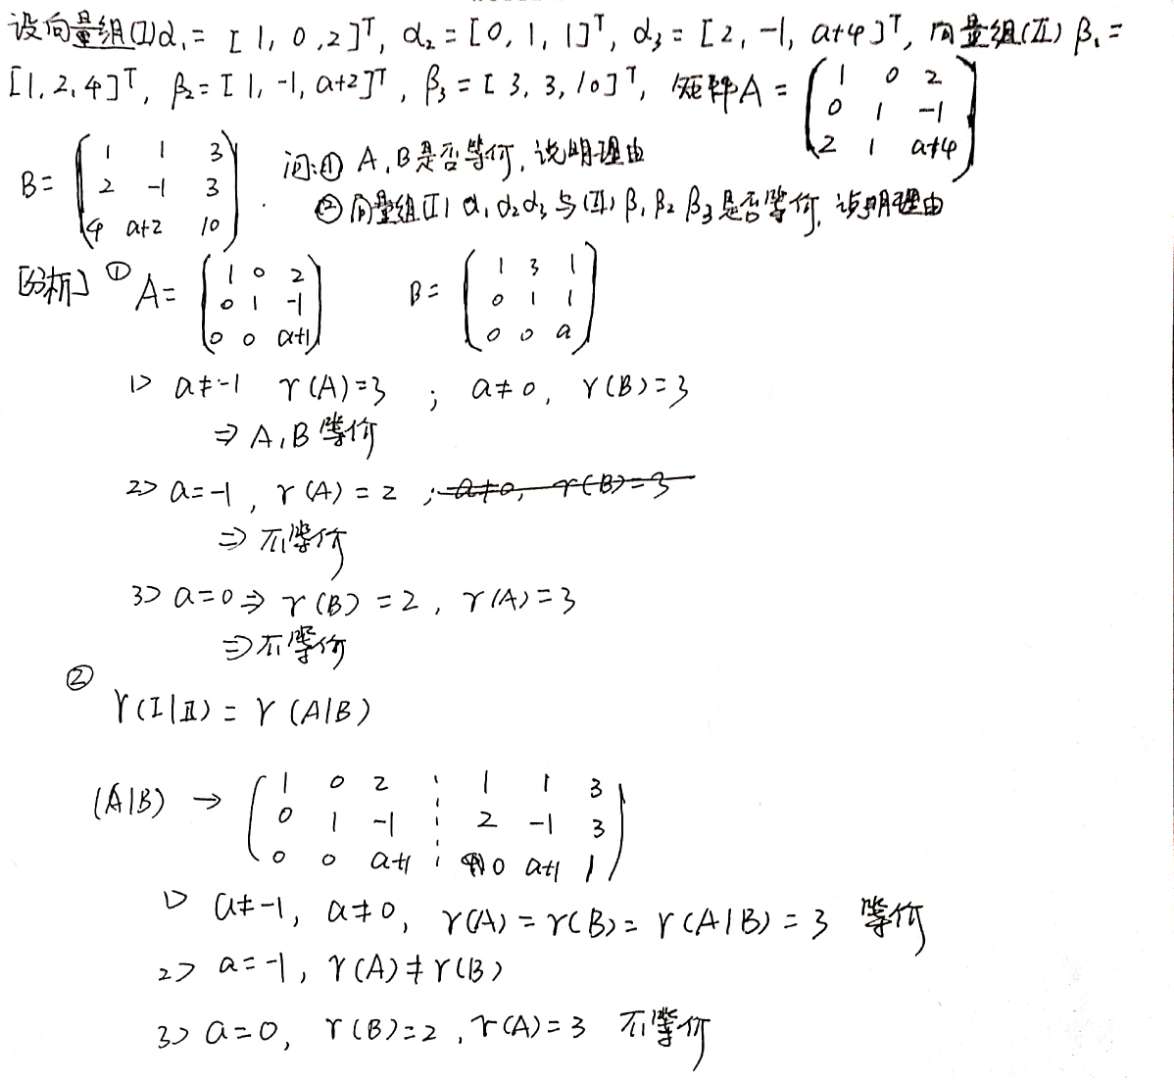 设向量组(I)α₁=[1,0,2]ᵀ, α₂=[0,1,1]ᵀ, α₃=[2,-1,a+4]ᵀ, 向量组(Ⅱ) β₁=
[1,2,4]ᵀ, β₂=[1,-1,a+2]ᵀ, β₃=[3,3,10]ᵀ, 矩阵A=(1 0 2; 0 1 -1; 2 1 a+4)
B=(1 1 3; 2 -1 3; 4 a+2 10). 问:① A,B是否等价,说明理由
② 向量组(I) α₁α₂α₃与(Ⅱ)β₁β₂β₃是否等价,说明理由
[分析] ① A=(1 0 2; 0 1 -1; 0 0 a+1) B=(1 3 1; 0 1 1; 0 0 a)
1> a≠-1 r(A)=3 ; a≠0, r(B)=3
⇒ A,B等价
2> a=-1, r(A)=2 ; a≠0, r(B)=3
⇒ 不等价
3> a=0⇒ r(B)=2, r(A)=3
⇒不等价
②
r(I|Ⅱ)=r(A|B)
(A|B) → (1 0 2 ⋮ 1 1 3; 0 1 -1 ⋮ 2 -1 3; 0 0 a+1 ⋮ 0 a+1 1)
1> a≠-1, a≠0, r(A)=r(B)=r(A|B)=3 等价
2> a=-1, r(A)≠r(B)
3> a=0, r(B)=2, r(A)=3 不等价